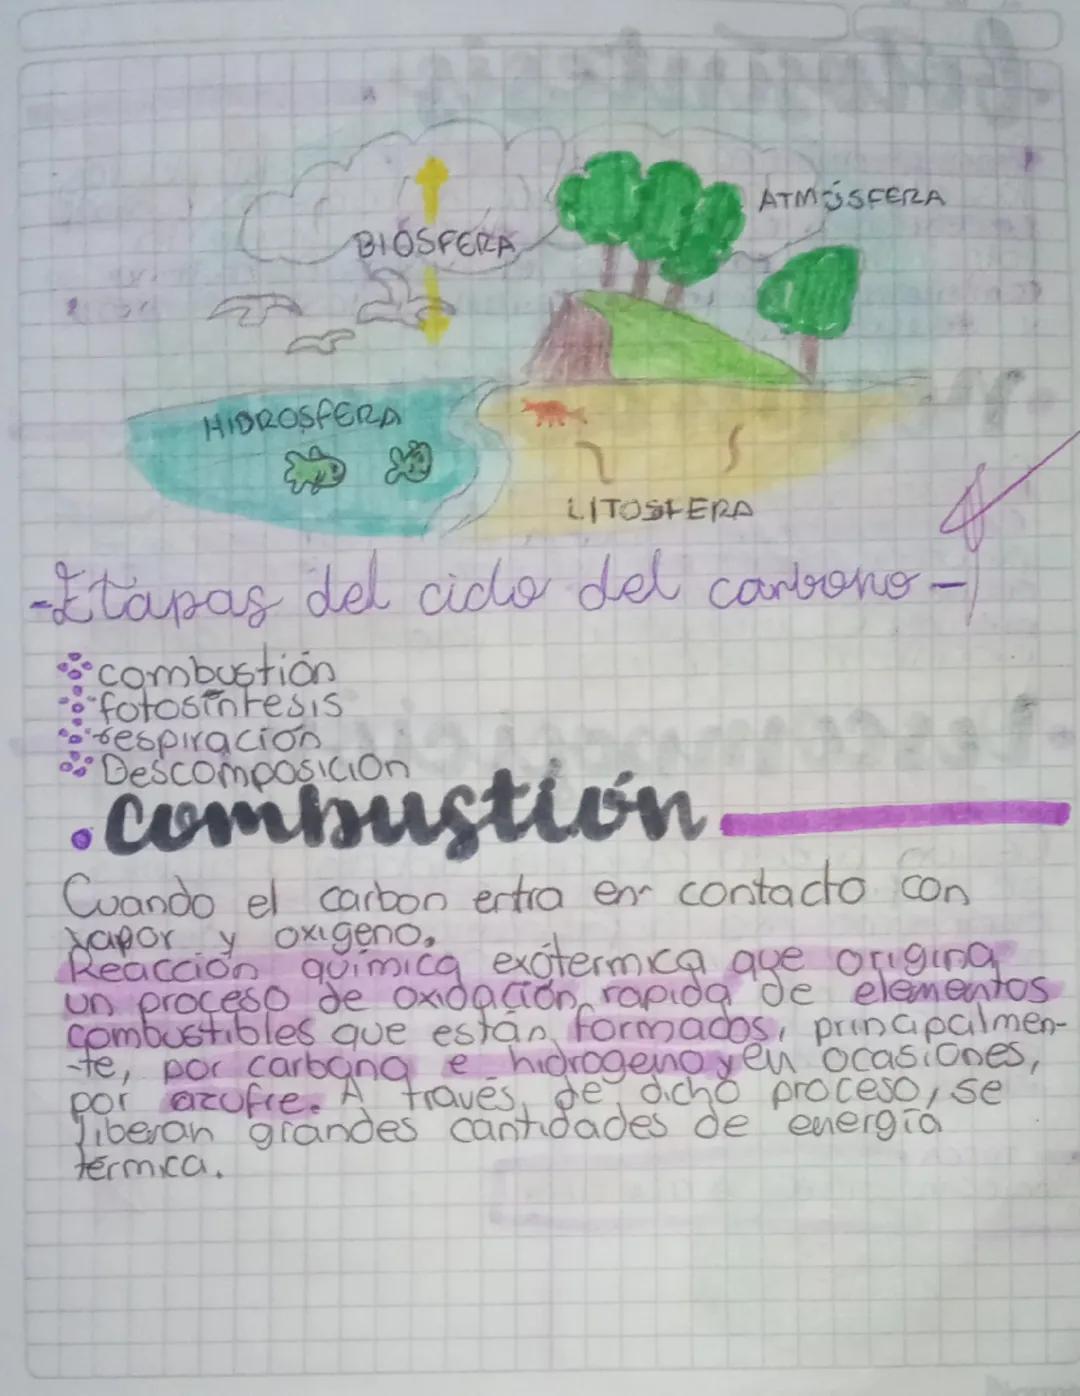 BIÓSFERA
ATMÓSFERA
HIDROSFERA
LITOSFERA
-Etapas del ciclo del carbono-
combustión
fotosíntesis
respiración
Descomposición
combustión
Cuando el carbon entra en contacto con
vapor y oxigeno.
Reacción química exótermica que origina
un proceso de oxidación rapida de elementos
combustibles que están formados, principalmen-
-te, por carbono e hidrogeno y en ocasiones,
por azufre. A través de dicho proceso, se
liberan grandes cantidades de energía
térmica.